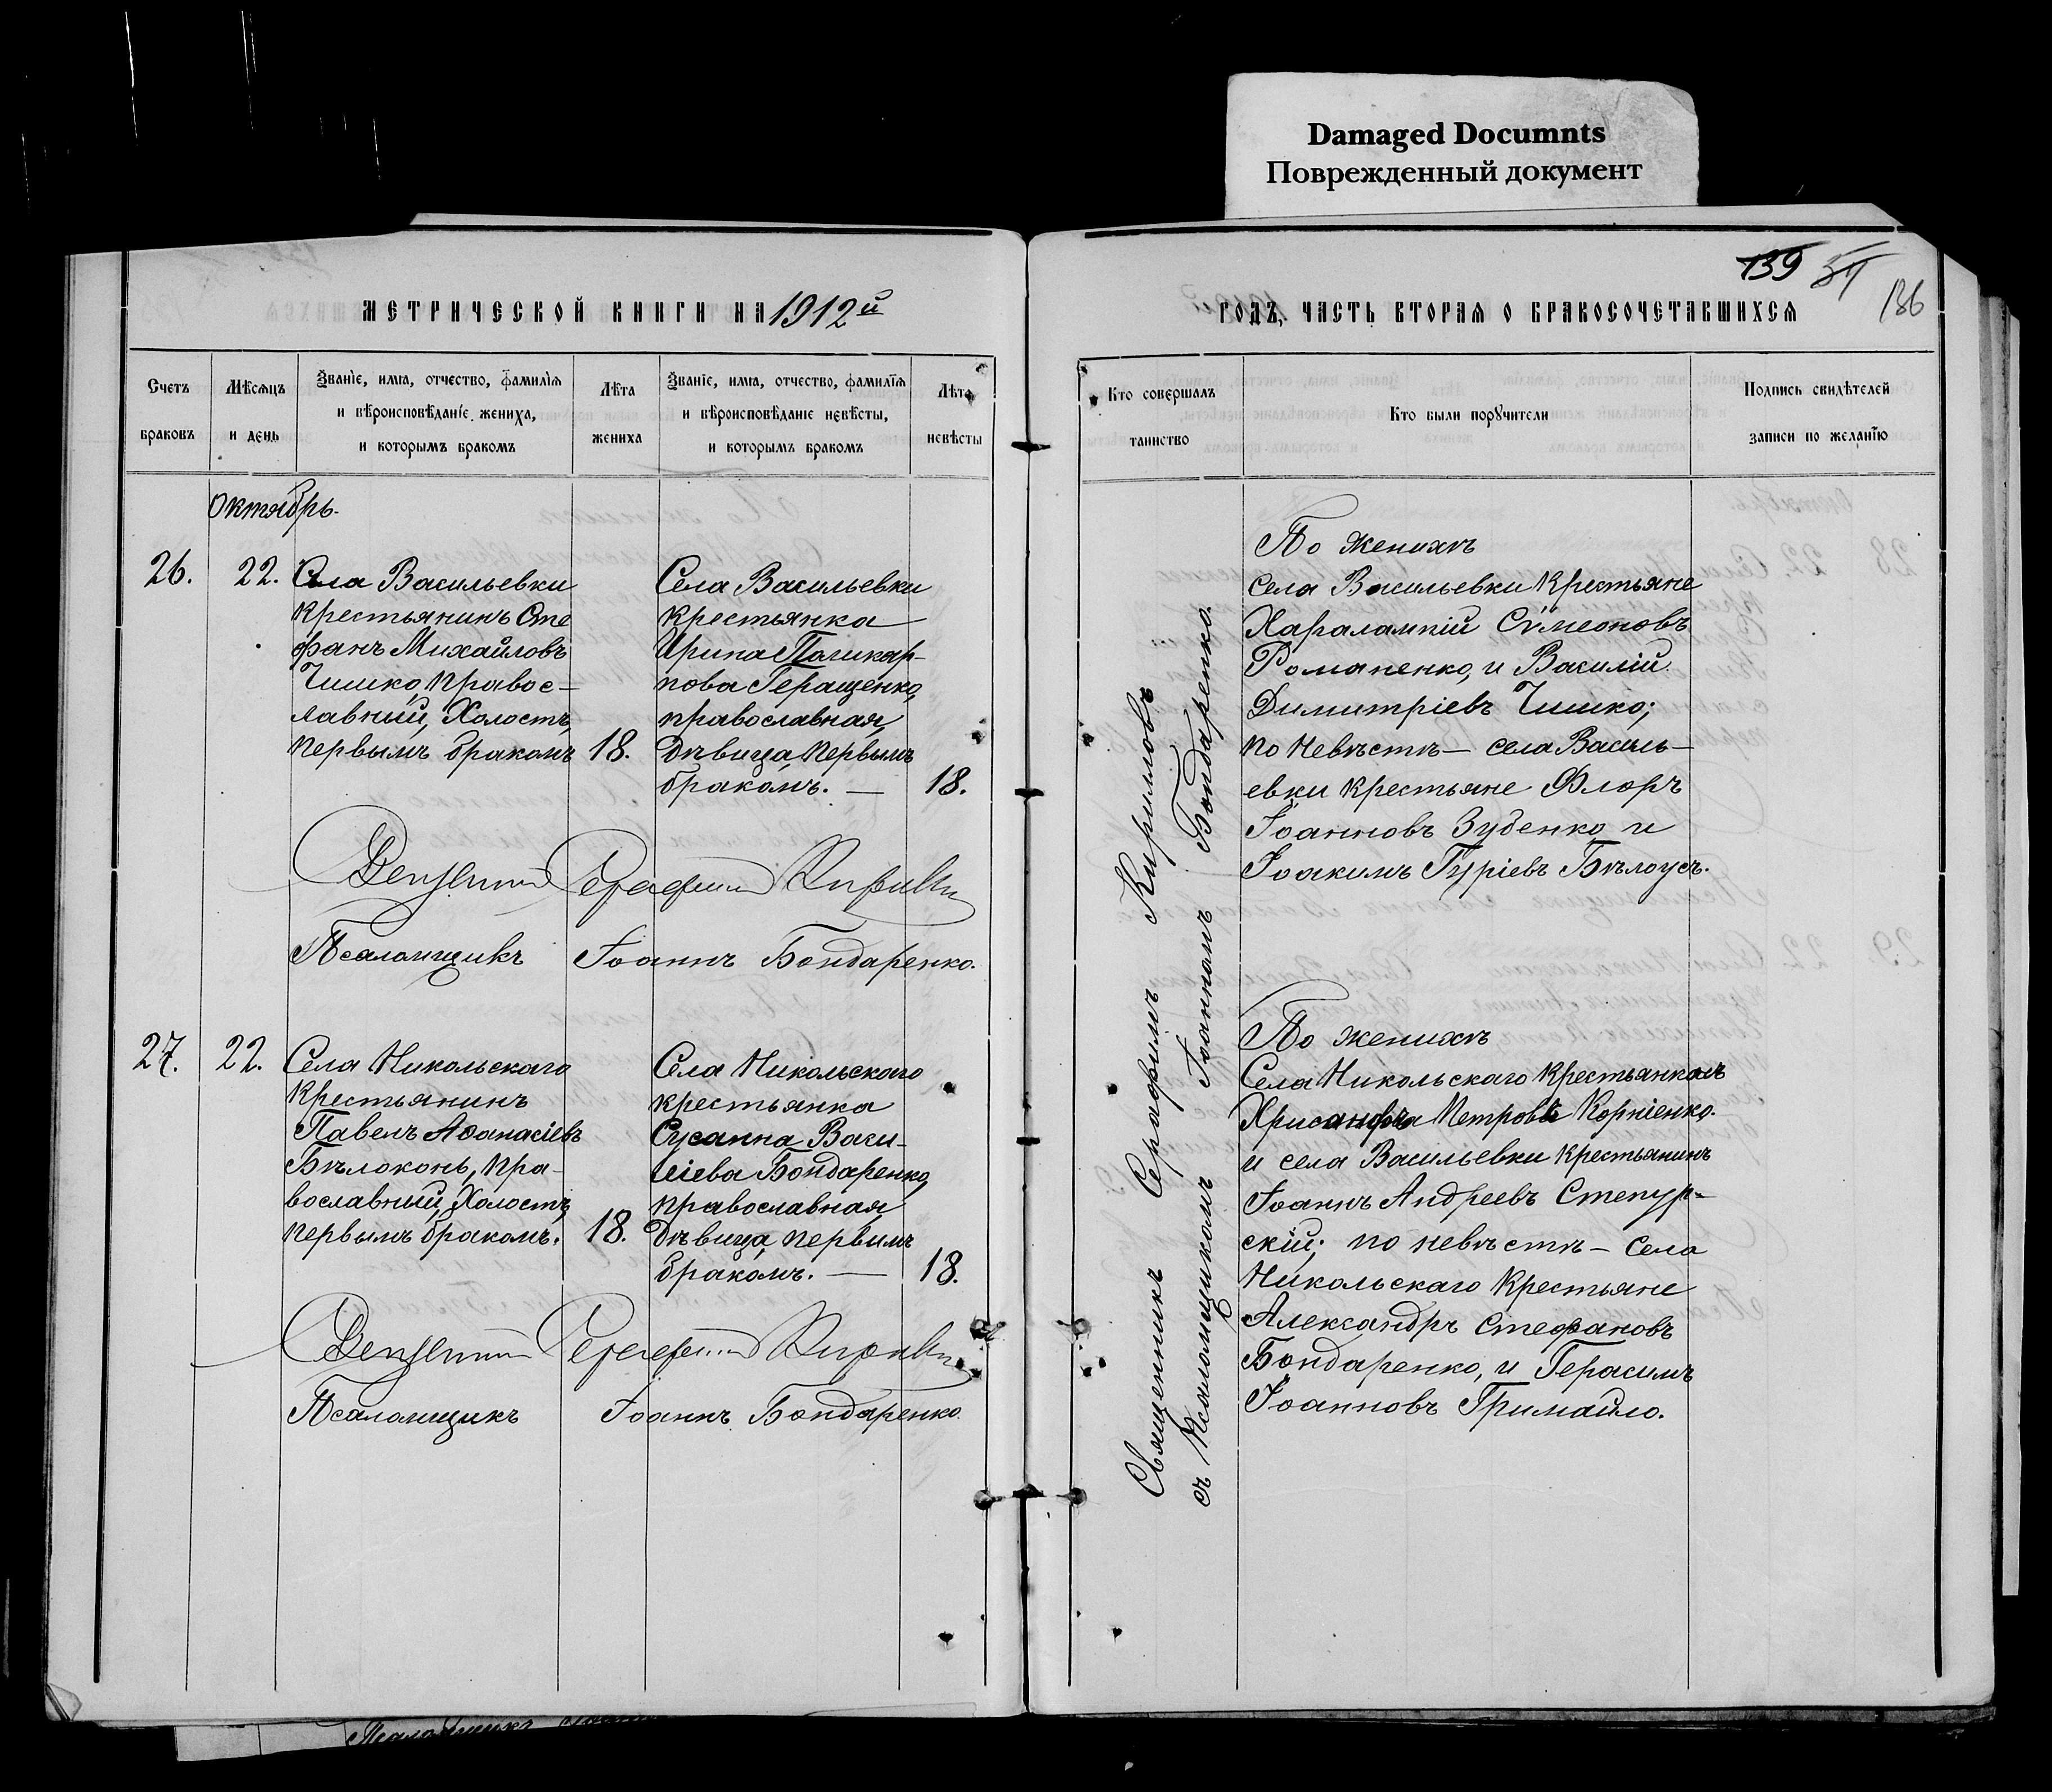 Damaged Documnts
Поврежденный документ
139 136
МЕТРИЧЕСКОЙ КНИГИ НА 1912й
ГОДЪ, ЧАСТЬ ВТОРАЯ О БРАКОСОЧЕТАВШИХСЯ
Счетъ браковъ
Мѣсяцъ и день
Званіе, имя, отчество, фамилія
и вѣроисповѣданіе жениха,
и которымъ бракомъ
Лѣта жениха
Званіе, имя, отчество, фамилія
и вѣроисповѣданіе невѣсты,
и которымъ бракомъ
Лѣта невѣсты
Кто совершалъ таинство
Кто были поручители
Подпись свидѣтелей
записи по желанію
Октябрь.
26. 22.
Села Васильевки
крестьянинъ Сте
фанъ Михайловъ
Чишко, правос-
лавный, холостъ,
первымъ бракомъ
18.
Села Васильевки
крестьянка
Ирина Поликар-
пова Геращенко,
православная,
дѣвица, первымъ
бракомъ. —
18.
Священникъ Серафимъ Кириловъ
Псаломщикъ Іоаннъ Бондаренко.
27. 22.
Села Никольскаго
крестьянинъ
Павелъ Аѳанасіевъ
Бѣлоконь, пра-
вославный, холостъ,
первымъ бракомъ.
18.
Села Никольскаго
крестьянка
Сусанна Васи-
ліева Бондаренко,
православная
дѣвица, первымъ
бракомъ. —
18.
Псаломщикъ Іоаннъ Бондаренко
Священникъ Серафимъ Кирилловъ
съ Псаломщикомъ Іоанномъ Бондаренко.
По женихѣ
села Васильевки крестьяне
Харалампій Сѵмеоновъ
Романенко, и Василій
Димитріевъ Чишко;
по невѣстѣ — села Василь-
евки крестьяне Флоръ
Іоанновъ Зубенко и
Іоакимъ Гуріевъ Бѣлоусъ.
По женихѣ
Села Никольскаго крестьянинъ
Петровъ Корніенко.
и села Васильевки крестьянинъ
Іоаннъ Андреевъ Степур-
скій; по невѣстѣ — села
Никольскаго крестьяне
Александръ Стефановъ
Бондаренко, и Герасимъ
Іоанновъ Гримайло.